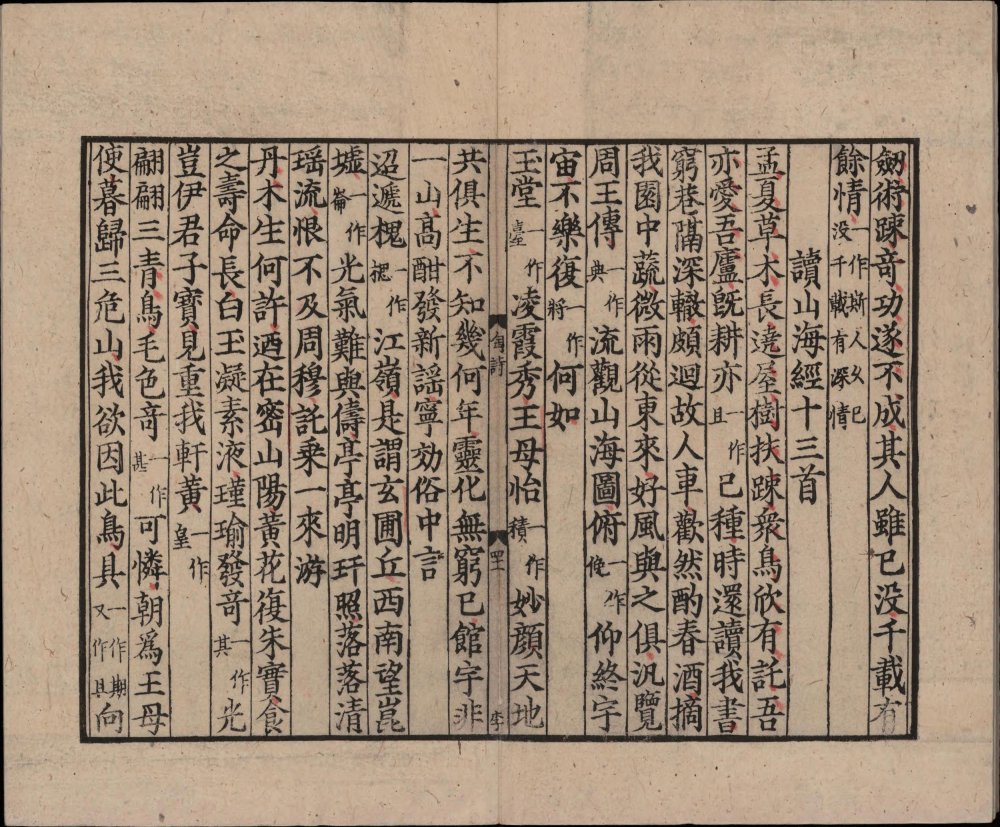 劒術踈竒功遂不成其人雖已没千載有
餘情一作斯人久已没千載有深情
讀山海經十三首
孟夏草木長遶屋樹扶踈衆鳥欣有託吾
亦愛吾廬旣耕亦一作且已種時還讀我書
窮巷隔深轍頗迴故人車歡然酌春酒摘
我園中蔬微雨從東來好風與之俱汎覽
周王傳一作典流觀山海圖俯一作俛仰終宇
宙不樂復一作將何如
玉堂一作臺凌霞秀王母怡一作積妙顔天地
陶詩 四 李
共俱生不知幾何年靈化無窮已館宇非
一山高酣發新謡寧効俗中言
迢遞槐一作摁江嶺是謂玄圃丘西南望崑
墟一作崙光氣難與儔亭亭明玕照落落清
瑶流恨不及周穆託乗一來游
丹木生何許迺在密山陽黄花復朱實食
之壽命長白玉凝素液瑾瑜發竒一作其光
豈伊君子寳見重我軒黄一作皇
翩翩三青鳥毛色竒一作甚可憐朝爲王母
使暮歸三危山我欲因此鳥具一作期又作且向